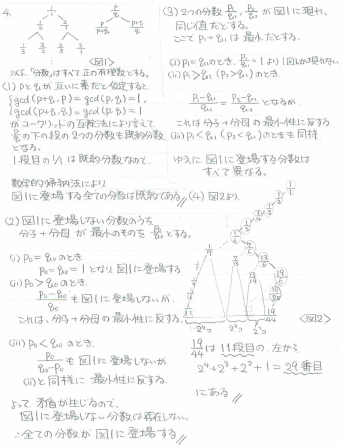 4.
1/1
1/2 2/1
1/3 3/2 2/3 3/1
<図1>
p/q
p/(p+q) (p+q)/q
以下「分数」はすべて正の有理数とする。
(1) pとqが互いに素だと仮定すると
gcd(p+q, p) = gcd(p, q) = 1,
gcd(p+q, q) = gcd(p, q) = 1
がユークリッドの互除法により言えて
の下の段の2つの分数も既約分数
となる。
1段目の1/1は既約分数なので、
数学的帰納法により
図1に登場する全ての分数は既約である//
(2) 図1に登場しない分数のうち
分子+分母が最小のものを p₀/q₀ とする。
(i) p₀ = q₀ のとき
p₀ = q₀ = 1 となり図1に登場する
(ii) p₀ > q₀ のとき
(p₀-q₀)/q₀ も図1に登場しないが
これは、分子+分母の最小性に反する。
(iii) p₀ < q₀ のとき
p₀/(q₀-p₀) も図1に登場しないが
(ii)と同様に最小性に反する
よって、矛盾が生じるので、
図1に登場しない分数は存在しない、
∴全ての分数が図1に登場する//
(3) 2つの分数 p₁/q₁, p₂/q₂ が図1に現れ、
同じ値だとする。
ここで p₁+q₁ は最小だとする。
(i) p₁ = q₁ のとき、p₁/q₁ = 1 より1回しか現れない
(ii) p₁ > q₁ (p₂ > q₂) のとき、
(p₁-q₁)/q₁ = (p₂-q₂)/q₂ となるが
これは分子+分母の最小性に反する
(iii) p₁ < q₁ (p₂ < q₂) のときも同様
ゆえに図1に登場する分数は
すべて異なる。
(4) 図2より、
<図2>
19/44 は 11段目の、左から
2⁴+2³+2²+1 = 29番目
にある//